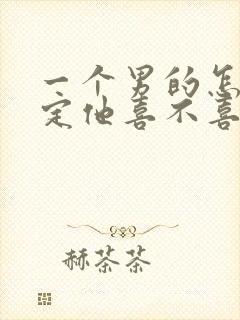 一个男的怎
定他喜不喜
赫茶茶